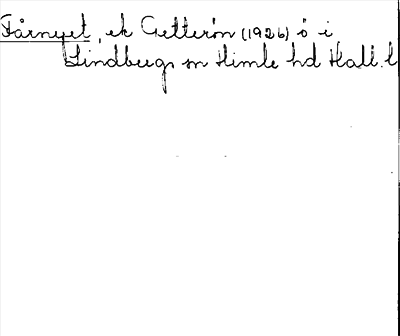 Fårnyet, ek Getterön (1926) ö i
Lindbergs sn Himle hd Hall. l